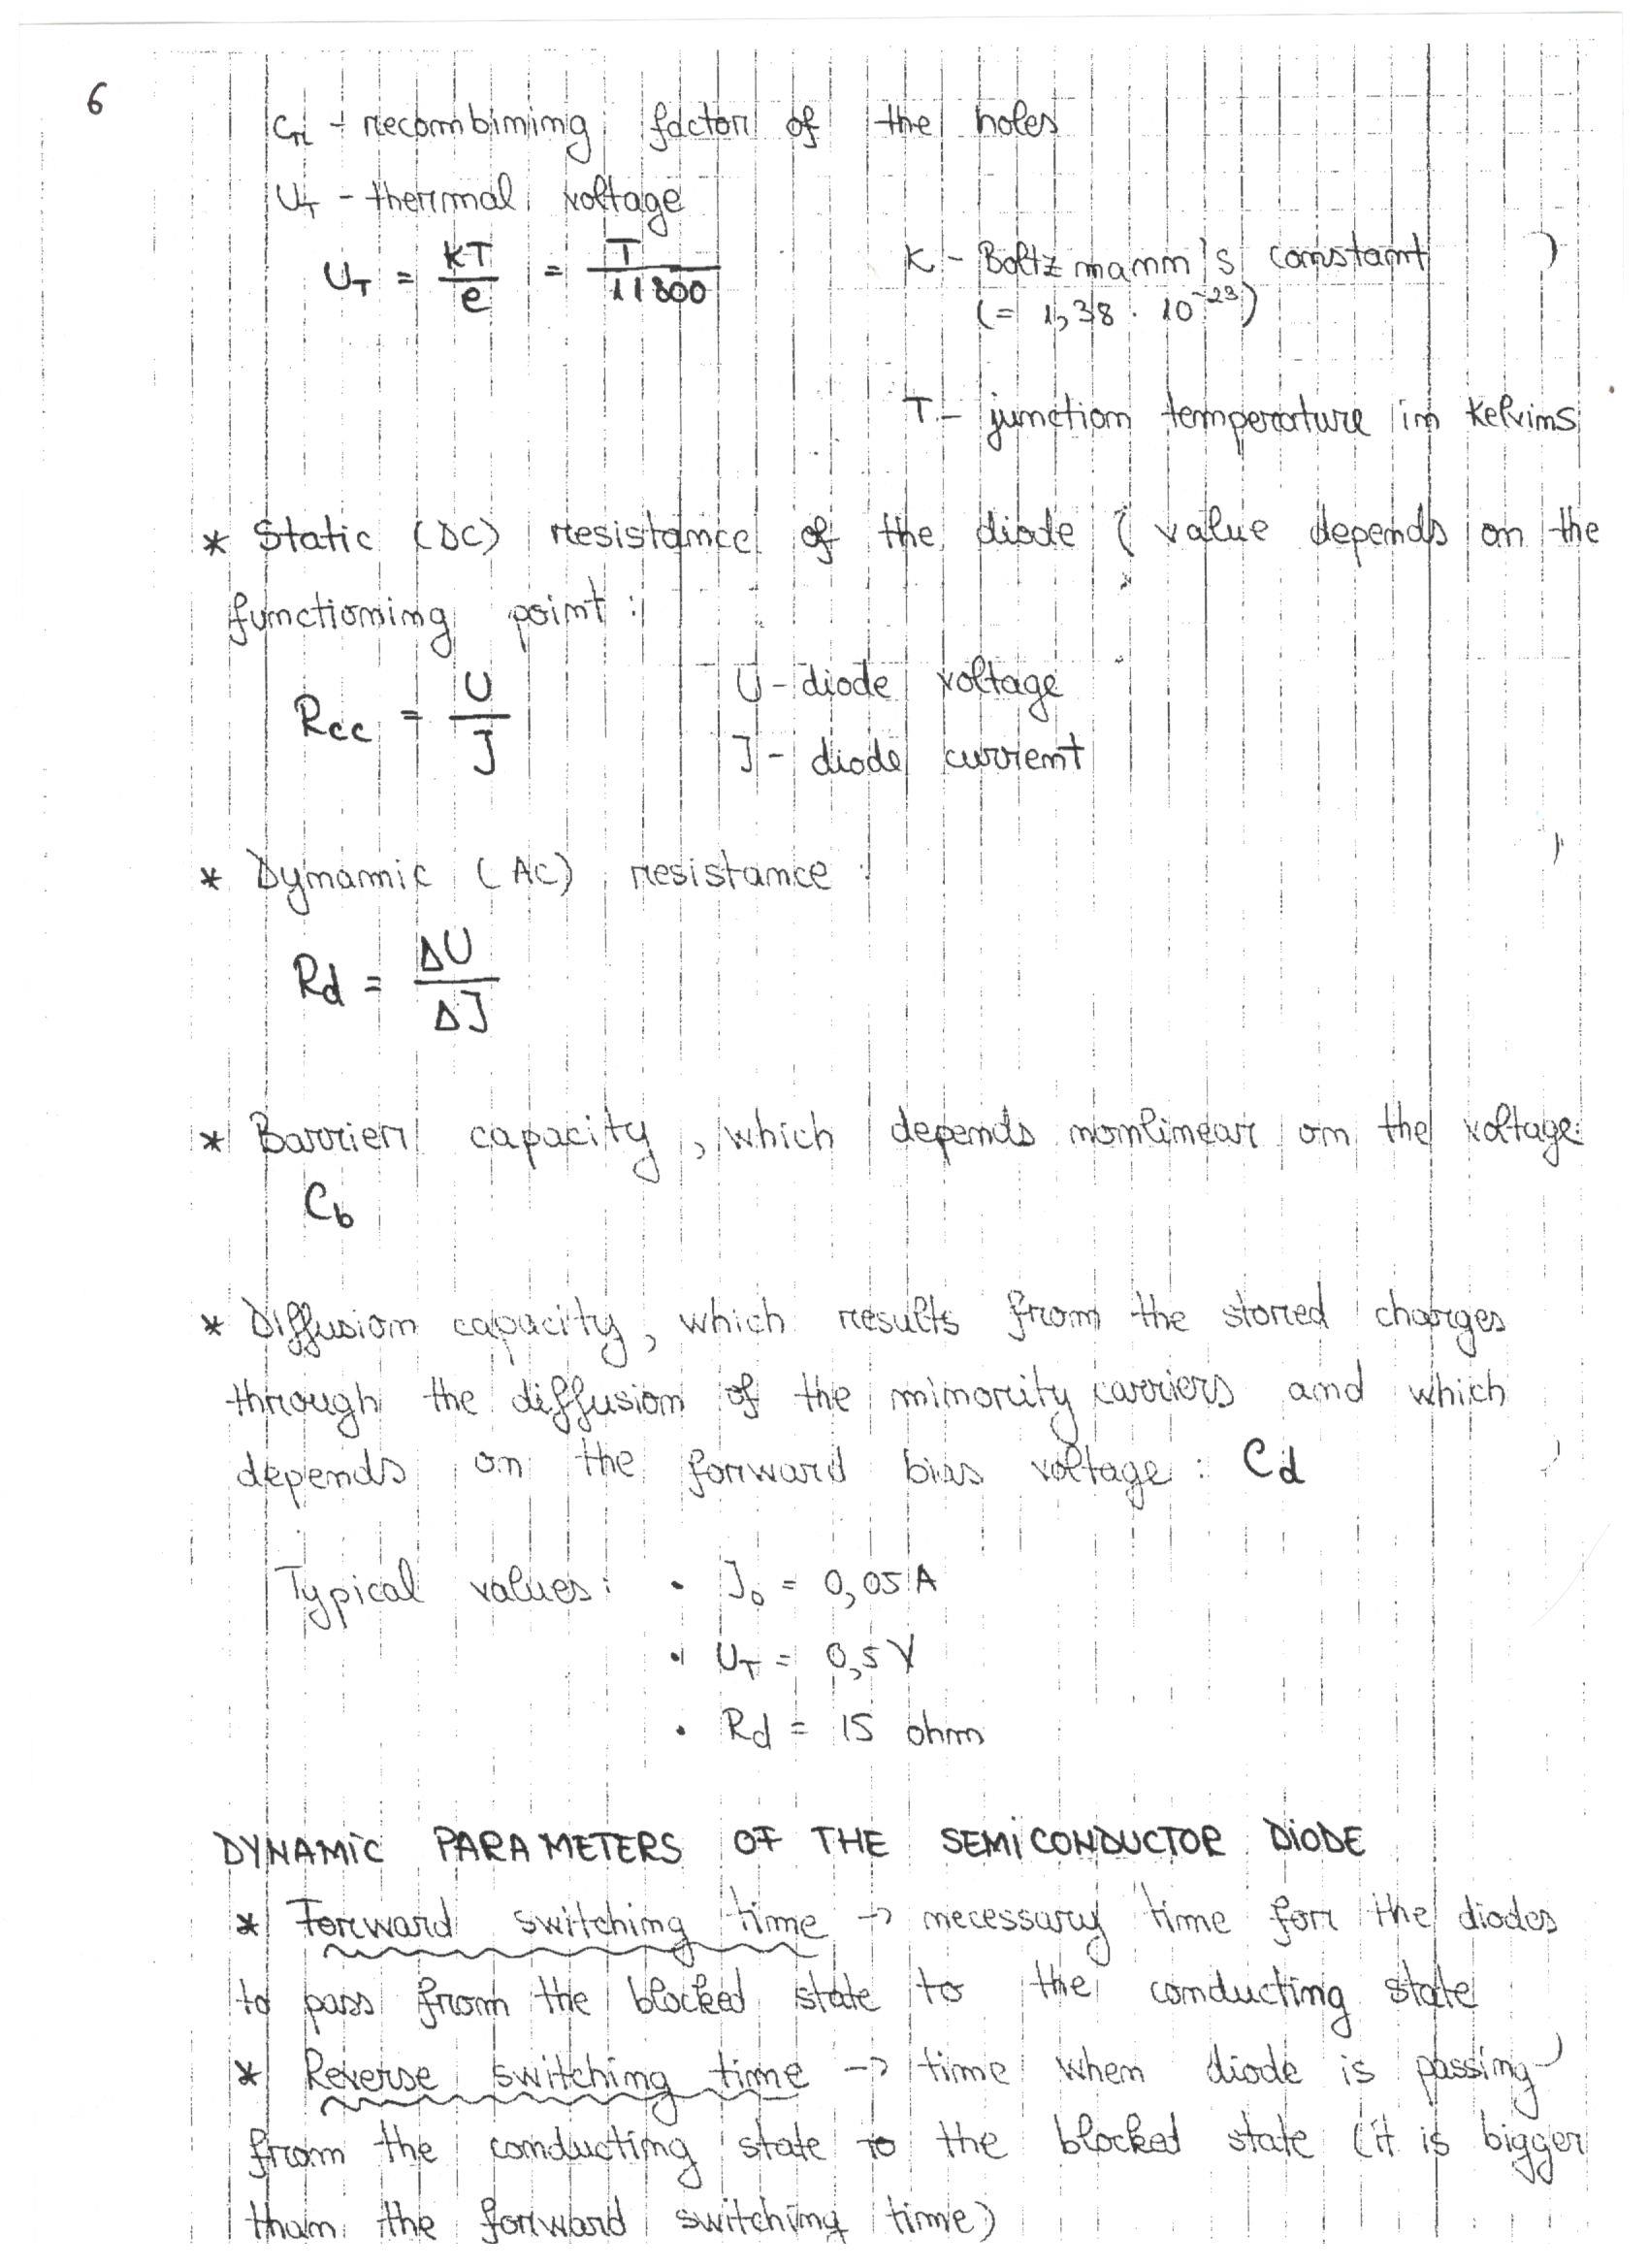 6
Cn - recombining factor of the holes
UT - thermal voltage
UT = kT/e = T/11800    K - Boltzmann's constant
(= 1,38 · 10^-23)
T - junction temperature in Kelvins
* Static (DC) resistance of the diode ( value depends on the
functioning point :
Rcc = U/J    U - diode voltage
J - diode current
* Dynamic (AC) resistance :
Rd = ΔU/ΔJ
* Barrier capacity , which depends nonlinear on the voltage:
Cb
* Diffusion capacity, which results from the stored charges
through the diffusion of the minority carriers and which
depends on the forward bias voltage : Cd
Typical values: • J0 = 0,05 A
• UT = 0,5 V
• Rd = 15 ohm
DYNAMIC PARAMETERS OF THE SEMICONDUCTOR DIODE
* Forward switching time → necessary time for the diodes
to pass from the blocked state to the conducting state
* Reverse switching time → time when diode is passing
from the conducting state to the blocked state (it is bigger
than the forward switching time)